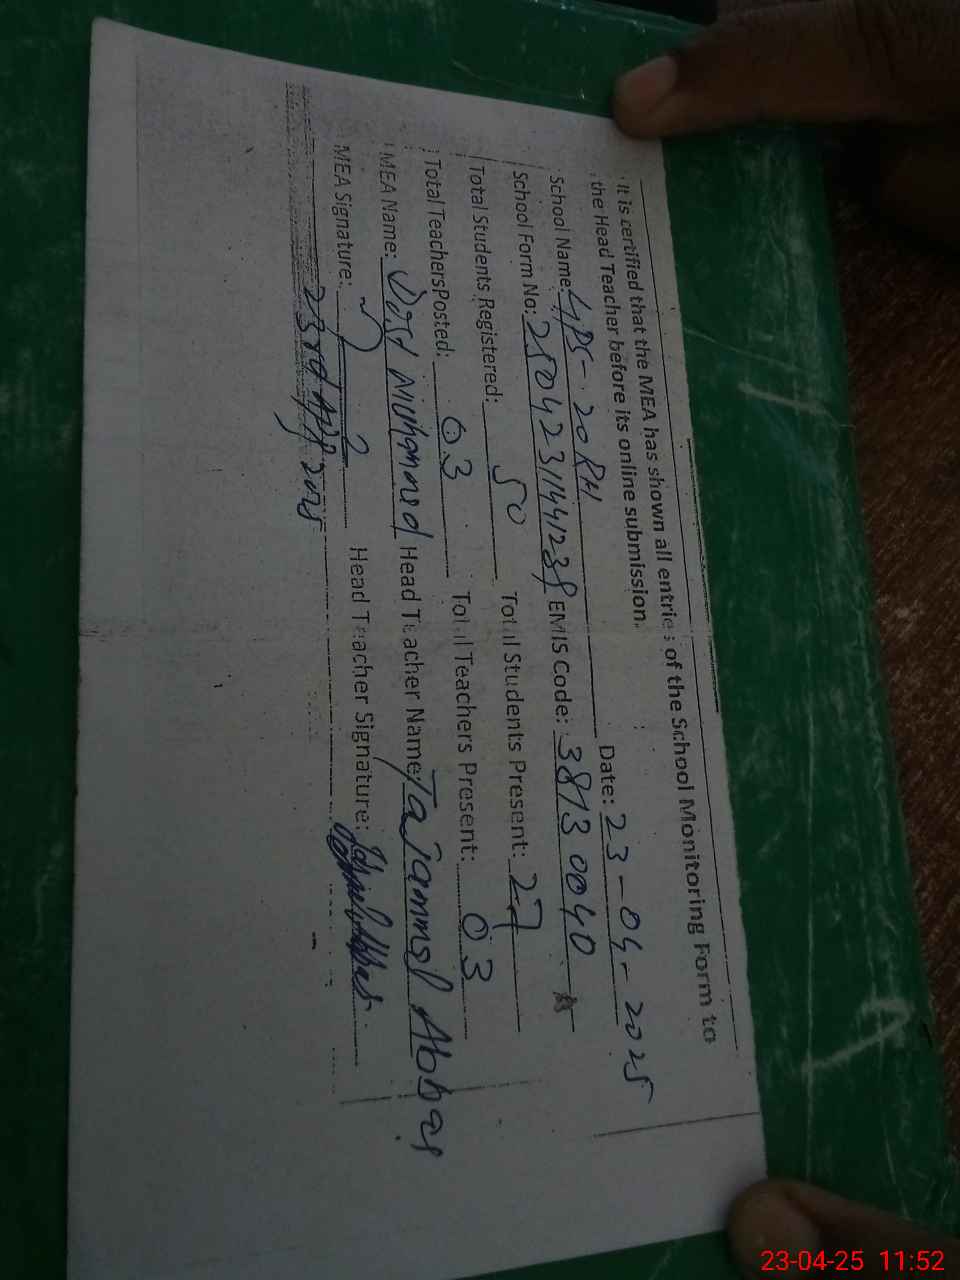 It is certified that the MEA has shown all entries of the School Monitoring Form to
the Head Teacher before its online submission.
School Name: GPS-20RH Date: 23-04-2025
School Form No: EMIS Code: 38130040
Total Students Registered: 50 Total Students Present: 27
Total Teachers Posted: 03 Total Teachers Present: 03
MEA Name: Dost Muhammad Head Teacher Name: Tajammal Abbas
MEA Signature: Head Teacher Signature:
23rd Apr 2025
23-04-25 11:52